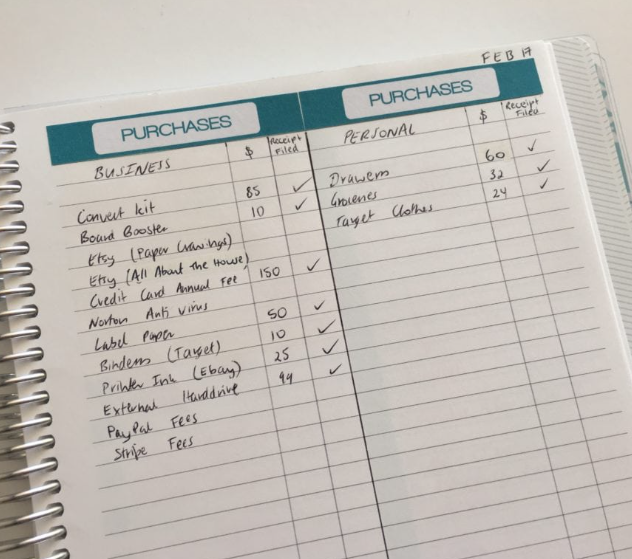 FEB 17
PURCHASES
BUSINESS $ Receipt Filed
Convert kit 85 ✓
Board Booster 10 ✓
Etsy (Paper Cravings)
Etsy (All About the House)
Credit Card Annual Fee 150 ✓
Norton Anti Virus
Label Paper 50 ✓
Binders (Target) 10 ✓
Printer Ink (Ebay) 25 ✓
External Harddrive 94 ✓
PayPal Fees
Stripe Fees
PURCHASES
PERSONAL $ Receipt Filed
Drawers 60 ✓
Groceries 32 ✓
Target Clothes 24 ✓